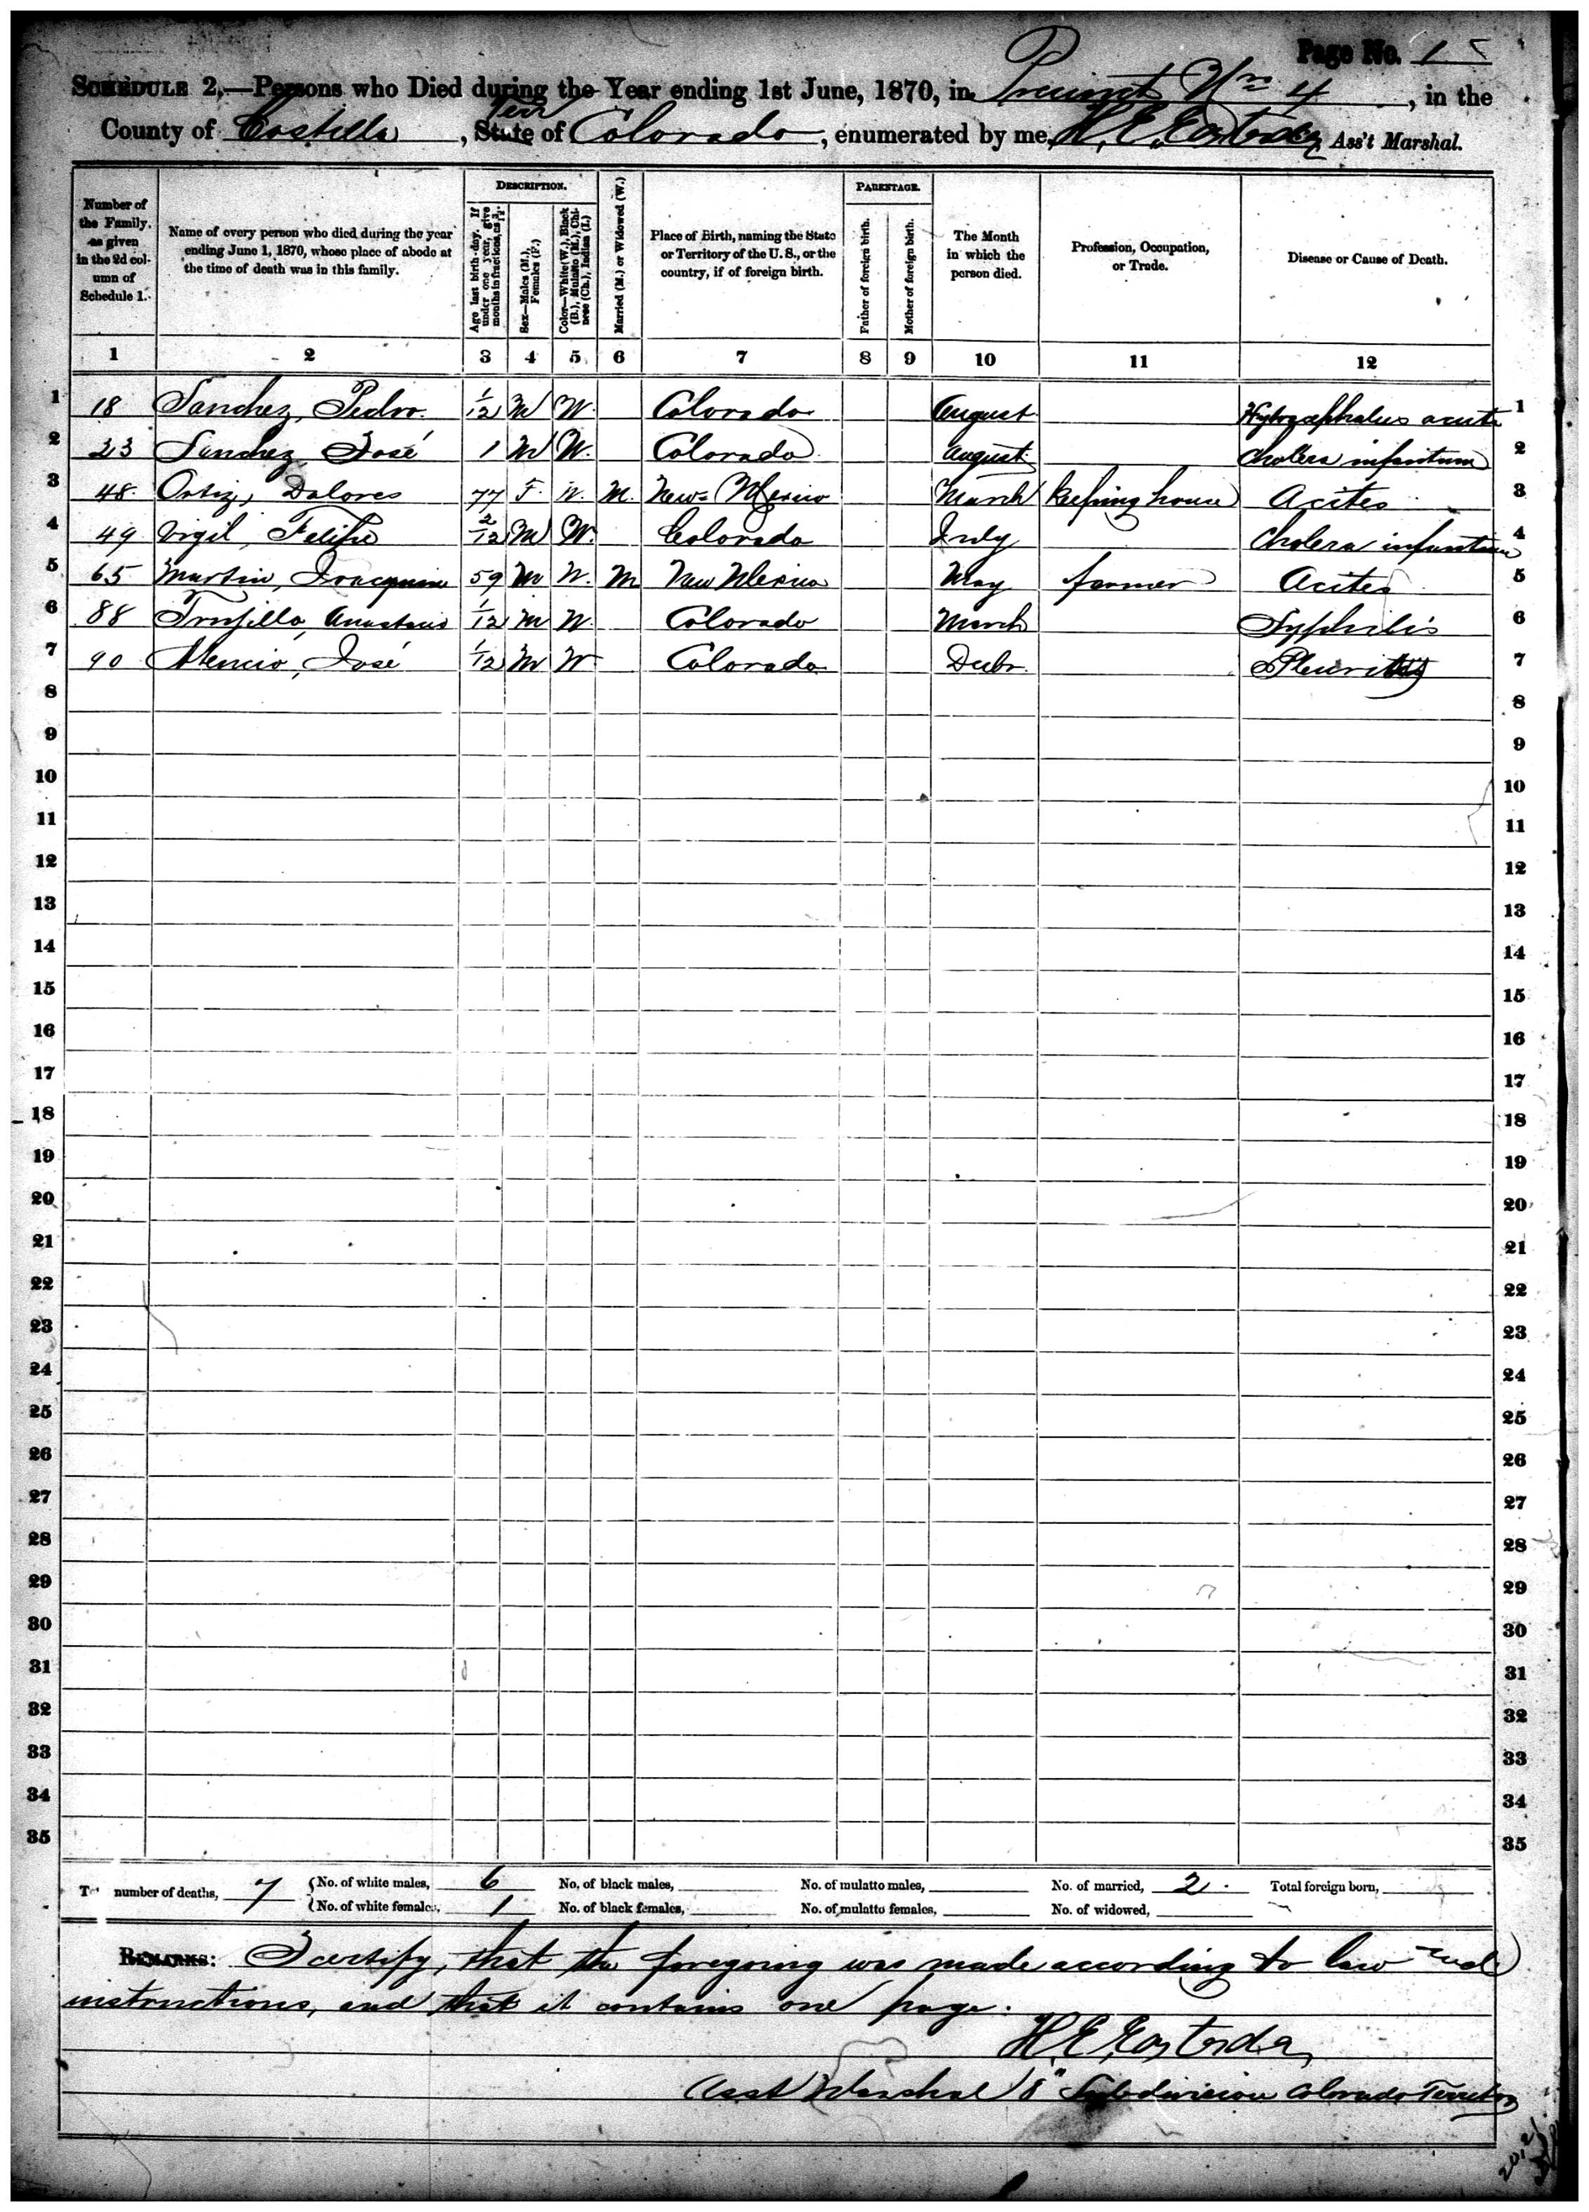 Page No. 1
SCHEDULE 2.—Persons who Died during the Year ending 1st June, 1870, in Precinct Nro 4, in the
Terr
County of Costilla, State of Colorado, enumerated by me, H. E. Easterday Ass't Marshal.
Number of the Family, as given in the 2d column of Schedule 1.
Name of every person who died during the year ending June 1, 1870, whose place of abode at the time of death was in this family.
DESCRIPTION.
Age last birth-day. If under one year, give months in fractions, as 3/12.
Sex—Males (M.), Females (F.)
Color—White (W.), Black (B.), Mulatto (M.), Chinese (Ch.), Indian (I.)
Married (M.) or Widowed (W.)
Place of Birth, naming the State or Territory of the U. S., or the country, if of foreign birth.
PARENTAGE.
Father of foreign birth.
Mother of foreign birth.
The Month in which the person died.
Profession, Occupation, or Trade.
Disease or Cause of Death.
1 2 3 4 5 6 7 8 9 10 11 12
1 18 Sanchez, Pedro. 1/12 M W. Colorado August Hydrocephalus acute 1
2 23 Sanchez José 1 M W. Colorado August Cholera infantum 2
3 48. Ortiz, Dolores 77 F. W. M. New Mexico March Keeping house Acites 3
4 49 Vigil, Felipe 2/12 M W. Colorado July Cholera infantum 4
5 65 Martin, Joaquin 59 M W. M New Mexico May farmer Acites 5
6 88 Trujillo, Anastacio 1/12 M W. Colorado March Syphilis 6
7 90 Atencio, José 1/12 M W Colorado Decbr. Pleuritis 7
8 8
9 9
10 10
11 11
12 12
13 13
14 14
15 15
16 16
17 17
18 18
19 19
20 20
21 21
22 22
23 23
24 24
25 25
26 26
27 27
28 28
29 29
30 30
31 31
32 32
33 33
34 34
35 35
number of deaths, 7 No. of white males, 6 No. of black males, No. of mulatto males, No. of married, 2. Total foreign born,
No. of white females, 1 No. of black females, No. of mulatto females, No. of widowed,
REMARKS: I certify, that the foregoing was made according to law and
instructions, and that it contains one page.
H. E. Easterday
Asst Marshal 8" Subdivision Colorado Territory